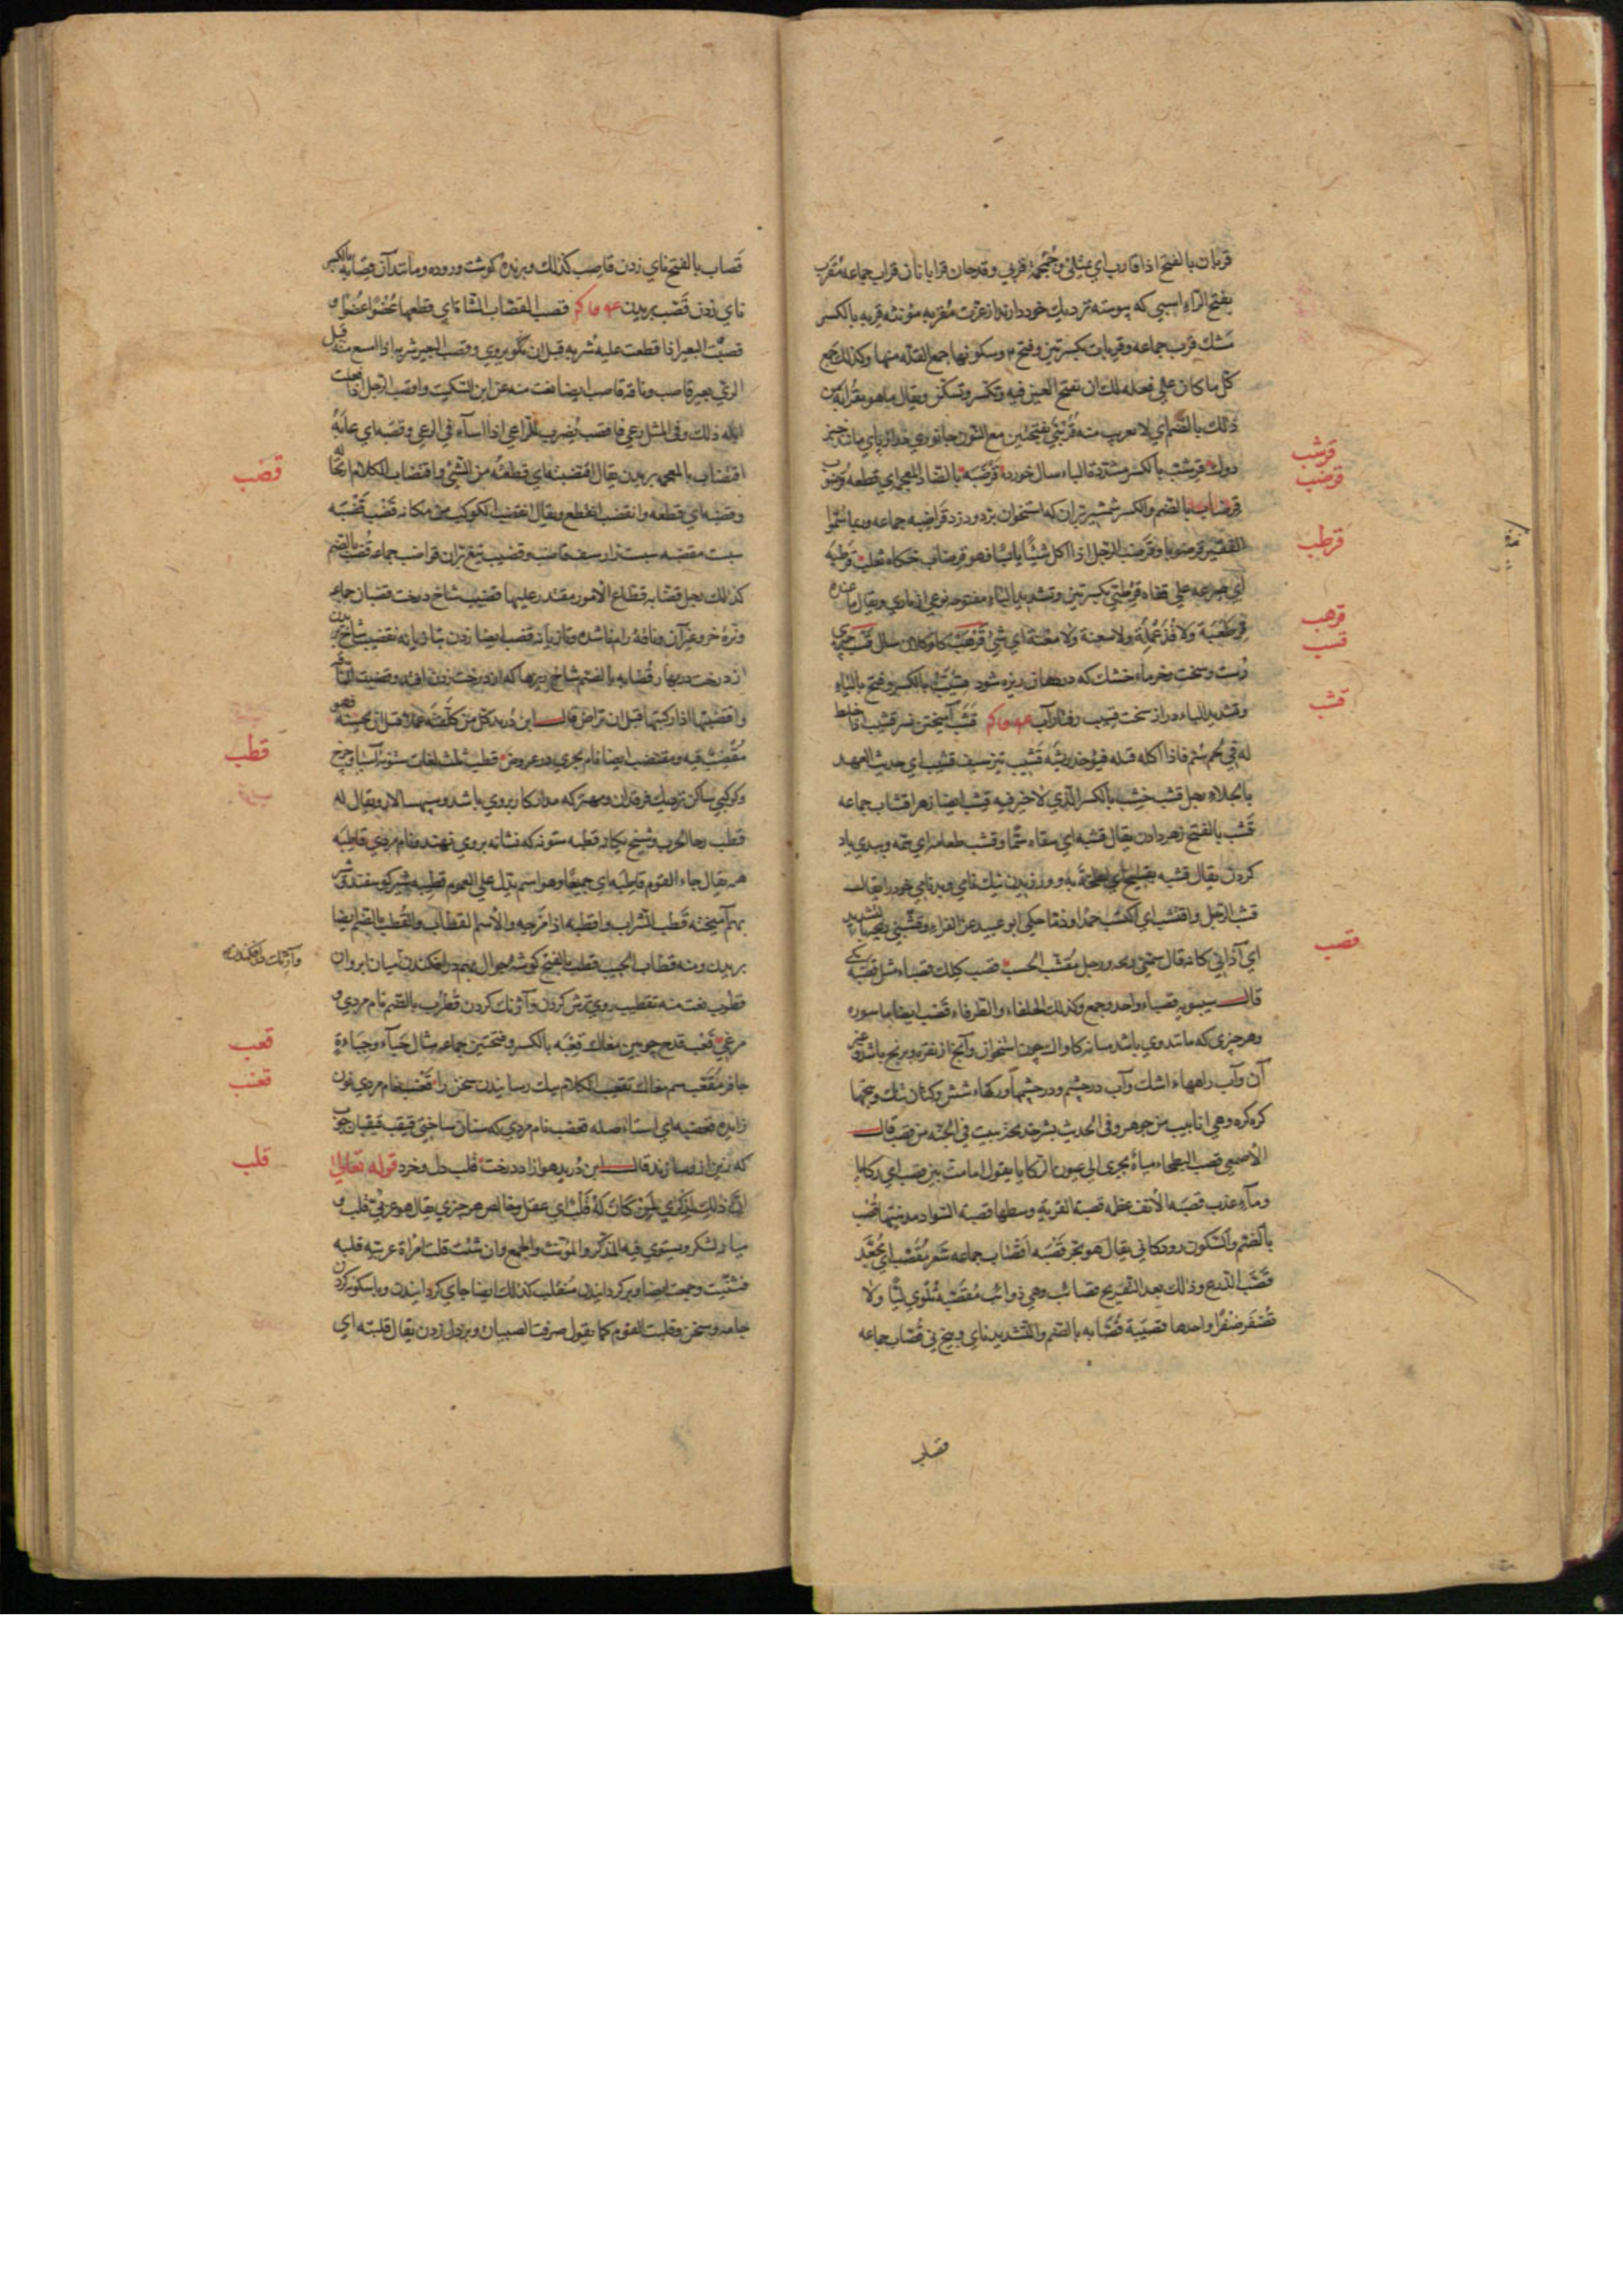 قربان بالفتح اذا قارب اي يمتلئ وجمجمة قربي وقدحان قربانان قراب جماعه مقرب
بفتح الراء اسبی که پیوسته نزدیك خود دارند از عزت مقربه مؤنثه قربه بالکسر
مشك قرب جماعه وقربات بکسرتین وفتح وسکونها جمع القلة منها وکذلك جمع
کل ما کان علی فعله لك ان تفتح العین فیه وتکسر وتسکن ویقال ما هو بقرابة من
ذلك بالضم اي لا بقریب منه قرنبی بفتحتین مع النون جانوری دراز پای مانند خبز
دوك قرشب بالکسر مشددة الباء سال خورده قرضبه بالضاد المعجمه ای قطعه
قرضاب بالضم والکسر شمشیر بران که استخوان برد ودزد قراضبه جماعه
الفقیر قرضوبا وقرضب الرجل اذا اکل شیئا یابسا فهو قرضاب حکاه ثعلب قرطبه
اي صرعه علی قفاه قرطبی بکسرتین وتشدید الباء مفتوحه نوعی از بازی ویقال ما عنده
قرطعبة ولا قذعملة ولا سعنة ولا معنة ای شئ قرهب کاو کلان سال قسب چیزی
درست وسخت وخرماء خشك که در دهان ریزه شود قسیب بالکسر وفتح یا الیاء
وتشدید الباء دراز سخت قسیب رفتار آب قشب آمیختن نسر قشیب اذا خلط
له في لحم سم فاذا اکله قتله فیؤخذ ریشه قشیب تیز سیف قشیب ای حدیث العهد
بالجلاء رجل قشب خشب بالکسر الذی لا خیر فیه قشب ایضا زهر اقشاب جماعه
قشب بالفتح زهر دادن یقال قشبه ای سقاه سما وقشب طعامه ای سمه وببدی یاد
کردن یقال قشبه بقبیح ای لطخه به وورزیدن نیك نامی وبدنامی خود را یقال
قشب الرجل واقتشب ای اکتسب حمدا او ذما حکی ابو عبید عن الفراء وقشبنی ریحه بالتشدید
ای آذانی کانه قال سمنی ریحه ورجل مقشب الحسب قصب کلك قصباء مثل قصبة یکی
قال سیبویه قصباء واحد وجمع وکذلك الحلفاء والطرفاء قصب ایضا ماسوره
وهر چیزی که مانند وی باشد میانه کاواك چون استخوان وآنچ از نقره وبرنج باشد وغیر
آن وآب راهها، اشك وآب در چشم ودر چشمها ورکهاء شش وکتان تنك وبیخها
کره کره وهی انابیب من جوهر وفی الحدیث بشر خدیجة ببیت فی الجنه من قصب قال
الاصمعی قصب البطحاء میاه تجری الی عیون الرکایا یقول اقامت بین قصب ای رکایا
وماء عذب قصبة الانف عظمه قصبة القریة وسطها قصبة السواد مدینتها قصب
بالضم والسکون رودکانی یقال هو یجر قصبه اقصاب جماعه شعر مقصب ای مجعد
قصب الزرع وذلك بعد التفریخ قصائب وهی ذوائب مقصبة تلوی لیا ولا
تضفر ضفرا واحدها قصیبة قصابه بالضم والتشدید نای وبیخ نی قصاب جماعه
قصاب
قرشب
قرضب
قرطب
قرهب
قسب
قشب
قصب
قصاب بالفتح نای زدن قاصب کذلك وبرنده کوشت وروده ومانند آن قصابه بالکسر
نای زدن قصب بریدن قصب القصاب الشاة ای قطعها عضوا عضوا و
قصبت البعیر اذا قطعت علیه شربه قبل ان یروی وقصب البعیر شربه اذا امتنع منه قبل
الری بعیر قاصب وناقة قاصب ایضا نعت منه عن ابن السکیت واقصب الرجل اذا فعلت
ابله ذلك وفی المثل رعی فاقصب یضرب للراعی اذا اساء فی الرعی وقصبه ای عابه
اقتضاب بالمعجمه بریدن یقال اقتضبته ای قطعته من الشئ واقتضاب الکلام ارتجاله
وقضبه ای قطعه وانقضب انقطع ویقال انقضب الکوکب من مکانه قضب قضبه
سبت مقضبه سبت زار سیف قاضب وقضیب تیغ بران قواضب جماعه قضب بالضم
کذلك رجل قضابه قطاع الامور مقتدر علیها قضیب شاخ درخت قضبان جماعه
ونره خر وغیر آن وناقه رام ناشده وتازیانه قضب ایضا زدن بتازیانه تقضیب شاخ بریدن
از درخت در بهار قضابه بالضم شاخ ریزها که از درخت زدن افتد وقضبت الناقة
واقتضبتها اذا رکبتها قبل ان تراض قال ابن درید کل من کلفته عملا قبل ان یحسنه فهو
مقتضب فیه ومقتضب ایضا نام بحری در عروض قطب بثلث لغات ستونه آسیا وچرخ
وکوکبی ساکن نزدیك فرقدان ومهتر که مدار کار بروی باشد وسپهسالار ویقال له
قطب رحا الحرب وشیخ یکانه قطبه ستونه که نشانه بروی نهند ونام مردی قاطبه
همه یقال جاء القوم قاطبة ای جمیعا وهو اسم یدل علی العموم قطیبه شیر کوسفند وشتر
بهم آمیخته قطب الشراب واقطبه اذا مزجه والاسم القطاب والقطب بالضم ایضا
بریدن ومنه قطاب الجیب قطب بالفتح کوشه جوال بهم در افکندن میان ابروان
قطوب نعت منه تقطیب روی ترش کردن وآژنك کردن قطرب بالضم نام مردی و
مرغی قعب قدح چوبین مغاك قعبه بالکسر وفتحتین جماعه مثال جباء وجباءة
حافر مقعب سم مغاك تقعیب الکلام نیك رسانیدن سخن را قعنب نام مردی نون
زایده قعضبه ای استاصله قعضب نام مردی که سنان ساختی قیقب قیقبان چوب
که زین ازو سازند قال ابن درید هو آزاد درخت قلب دل وخرد قوله تعالی
ان فی ذلك لذکری لمن کان له قلب ای عقل وخالص هر چیزی یقال هو عربی قلب و
میانه لشکر ویستوی فیه المذکر والمؤنث والجمع وان شئت قلت امراة عربیة قلبه
فثنیت وجمعت ایضا وبر کردانیدن منقلب کذلك ایضا جای کردانیدن وباسکونه کردن
جامه وسخن وقلبت القوم کما یقول صرفت الصبیان وبر دل زدن یقال قلبته ای
قضب
قطب
وآژنك در افکندن
قعب
قعنب
قلب